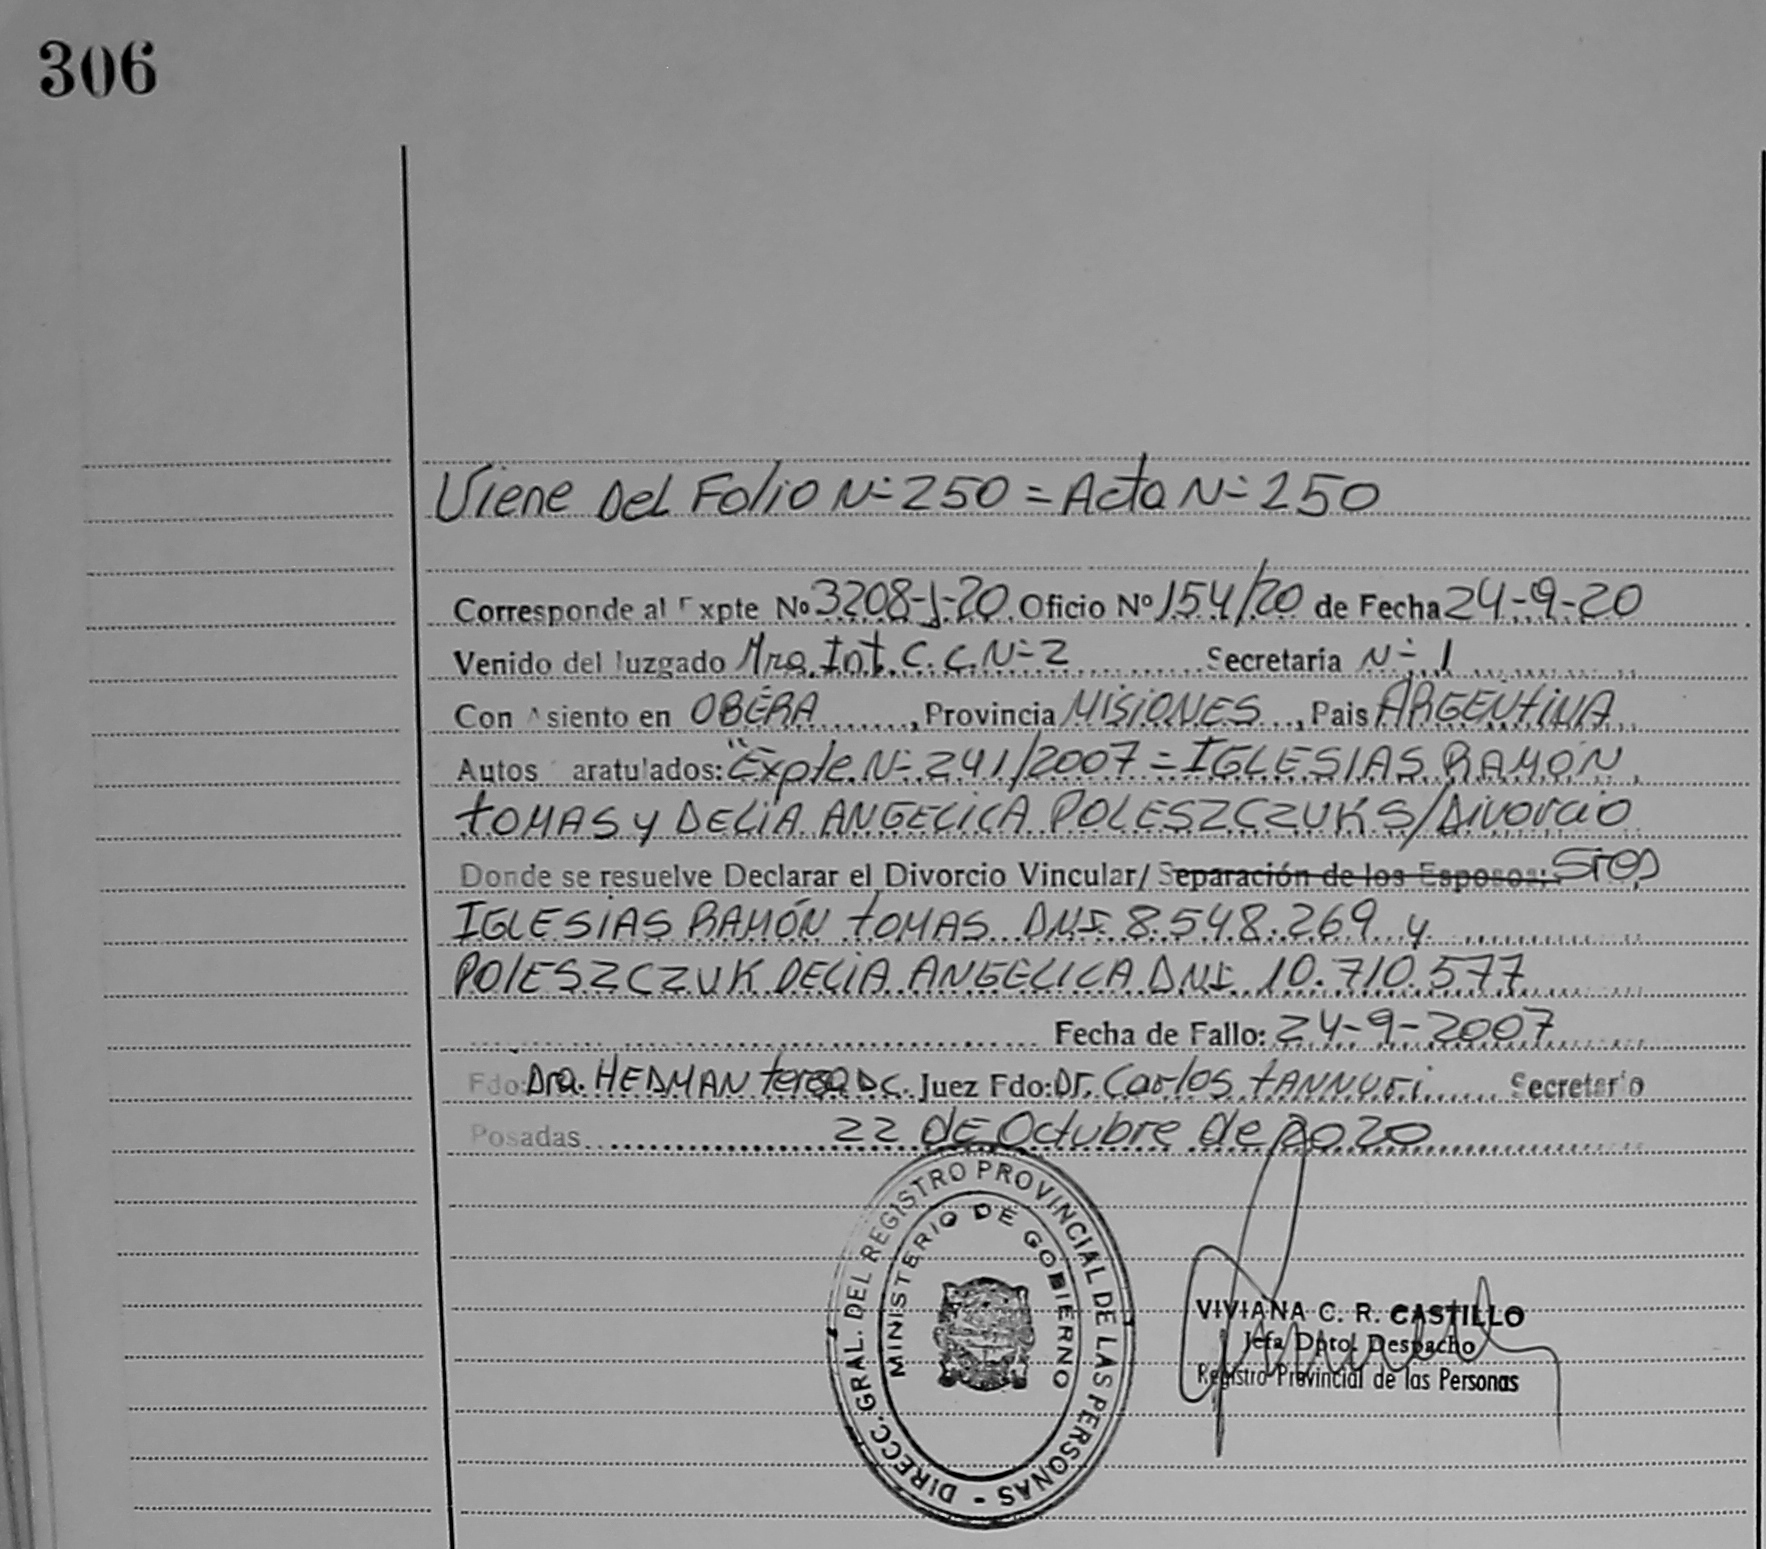 306
Viene Del Folio Nº 250 = Acta Nº 250
Corresponde al Expte Nº 3208-J-20 Oficio Nº 154/20 de Fecha 24-9-20
Venido del Juzgado 1ra. Int. C. C. Nº 2 Secretaría Nº 1
Con Asiento en OBERA, Provincia MISIONES, Pais ARGENTINA
Autos aratulados: "Expte. Nº 241/2007 = IGLESIAS RAMÓN
tOMAS y DELIA ANGELICA POLESZCZUK S/Divorcio
Donde se resuelve Declarar el Divorcio Vincular/ Separación de los Esposos: Sres
IGLESIAS RAMÓN tOMAS DNI 8.548.269 y
POLESZCZUK DELIA ANGELICA DNI 10.710.577
Fecha de Fallo: 24-9-2007
Fdo: Dra. HEDMAN teresa D C. Juez Fdo: Dr. Carlos tANNURi Secretario
Posadas 22 de Octubre de 2020
DIRECC. GRAL. DEL REGISTRO PROVINCIAL DE LAS PERSONAS -
MINISTERIO DE GOBIERNO
VIVIANA C. R. CASTILLO
Jefa Dpto. Despacho
Registro Provincial de las Personas